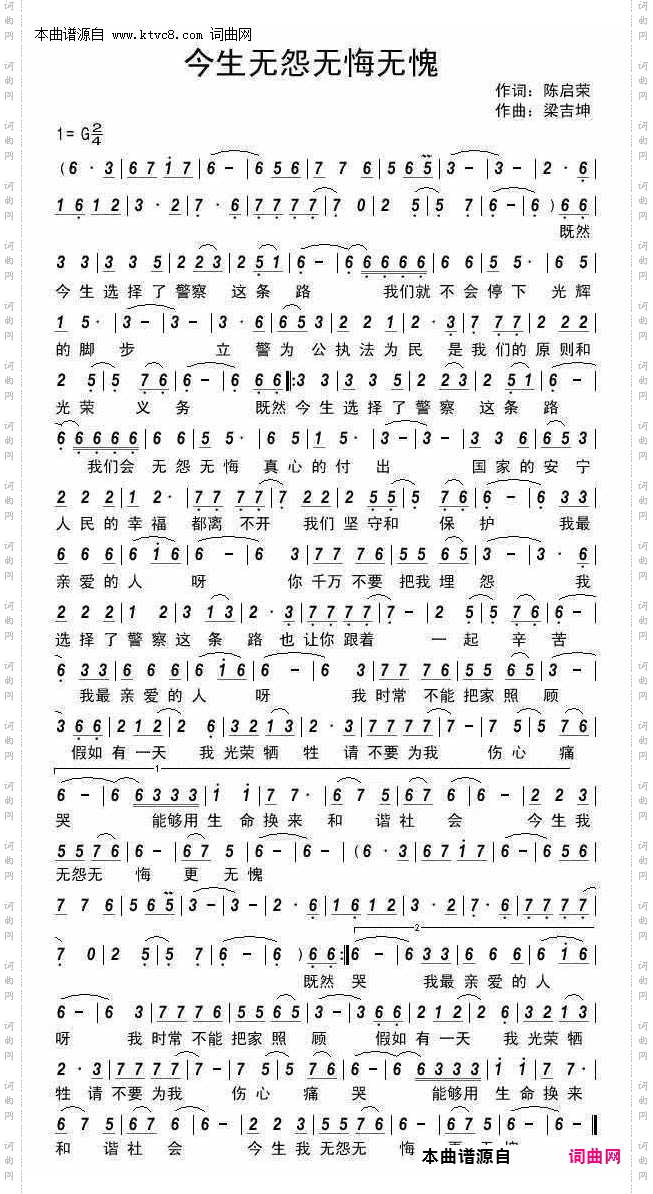 本曲谱源自 www.ktvc8.com 词曲网
今生无怨无悔无愧
作词：陈启荣
作曲：梁吉坤
1=G 2/4
(6·3|67i7|6-|656|776|565|3-|3-|2·6|
1612|3·2|7·6|7777|70|25|57|6-|6-)|66|
既然
33|335|223|251|6-|66666|665|5·|65|
今生选择了警察 这条 路 我们就 不会停下 光辉
15·|3-|3-|3·6|653|221|2·3|777|222|
的脚 步 立 警为 公执法为民 是我们的原则和
25|576|6-|666|:33|335|223|251|6-|
光荣 义务 既然今生选择了警察 这条路
66666|66|655·|651|5·3|3-|336|653|
我们会 无怨无悔 真心的付出 国家的安宁
222|212·|7777|77|7222|255|576|6-|633|
人民的幸福 都离 不开 我们坚守和 保护 我最
666|6i6|6-|63|7776|5565|3-|3·6|
亲爱的人 呀 你千万不要 把我埋怨 我
222|2313|2·3|7777|7-|25|576|6-|
选择了警察这条 路也让你跟着 一起 辛苦
633|666|6i6|6-|63|7776|5565|3-|
我最亲爱的人 呀 我时常 不能把家照 顾
366|212|26|3213|2·3|7777|7-|75|576|
假如有一天 我光荣牺 牲 请不要为我 伤心痛
1
6-|66333|ii|77·|675|676|6-|223|
哭 能够用生 命换来 和 谐社 会 今生我
5576|6-|675|6-|6-|(6·3|67i7|6-|656|
无怨无 悔 更 无愧
776|565|3-|3-|2·6|1612|3·2|7·6|7777|
2
70|25|57|6-|6-)|66:|6-|633|666|6i6|
既然 哭 我最亲爱的人
6-|63|7776|5565|3-|366|212|26|3213|
呀 我时常不能把家照 顾 假如有一天 我光荣牺
2·3|7777|7-|75|576|6-|66333|ii|77·|
牲 请不要为我 伤心 痛 哭 能够用 生命换来
675|676|6-|223|5576|6-|675|6-|6-‖
和 谐社会 今生我无怨无 悔
本曲谱源自 词曲网